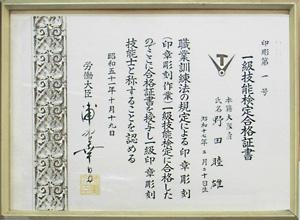 印彫第一号
一級技能検定合格証書
本籍 大阪府
氏名 野田睦雄
職業訓練法の規定による印章彫刻
(印章彫刻作業)一級技能検定に合格した
のでここに合格証書を授与し一級印章彫刻
技能士と称することを認める
昭和五十一年十月十九日
労働大臣